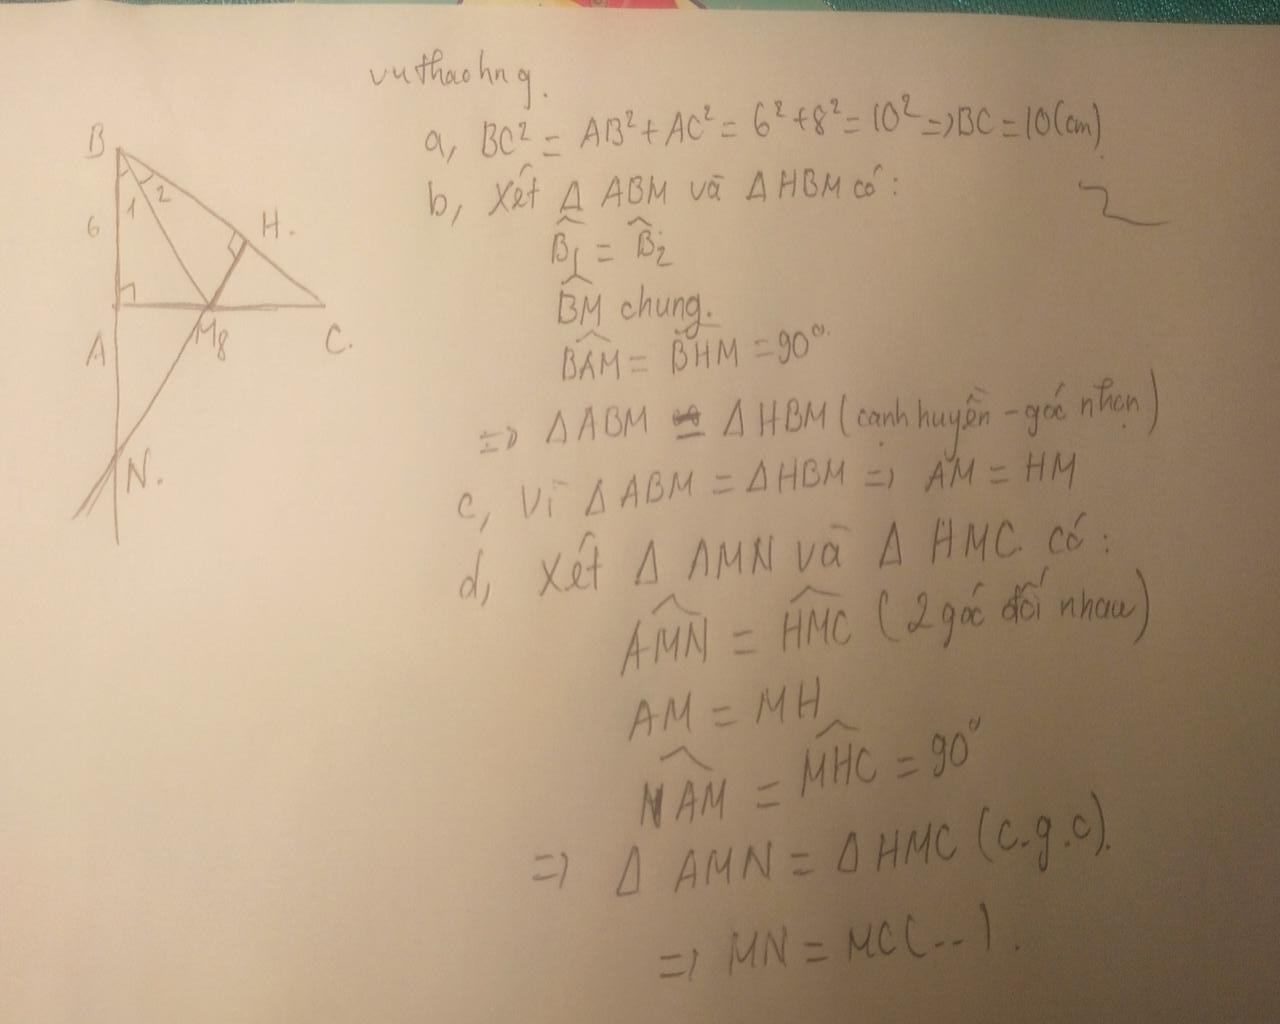 vuthaohng.
a, BC² = AB² + AC² = 6² + 8² = 10² => BC = 10 (cm)
b, Xét Δ ABM và Δ HBM có:
B̂₁ = B̂₂
BM chung.
BAM = BHM = 90°
=> Δ ABM = Δ HBM (cạnh huyền - góc nhọn)
c, Vì Δ ABM = Δ HBM => AM = HM
d, Xét Δ AMN và Δ HMC có:
AMN = HMC (2 góc đối nhau)
AM = MH
NAM = MHC = 90°
=> Δ AMN = Δ HMC (c.g.c).
=> MN = MC (...).
B
1 2
6
H.
A
M 8
C.
N.